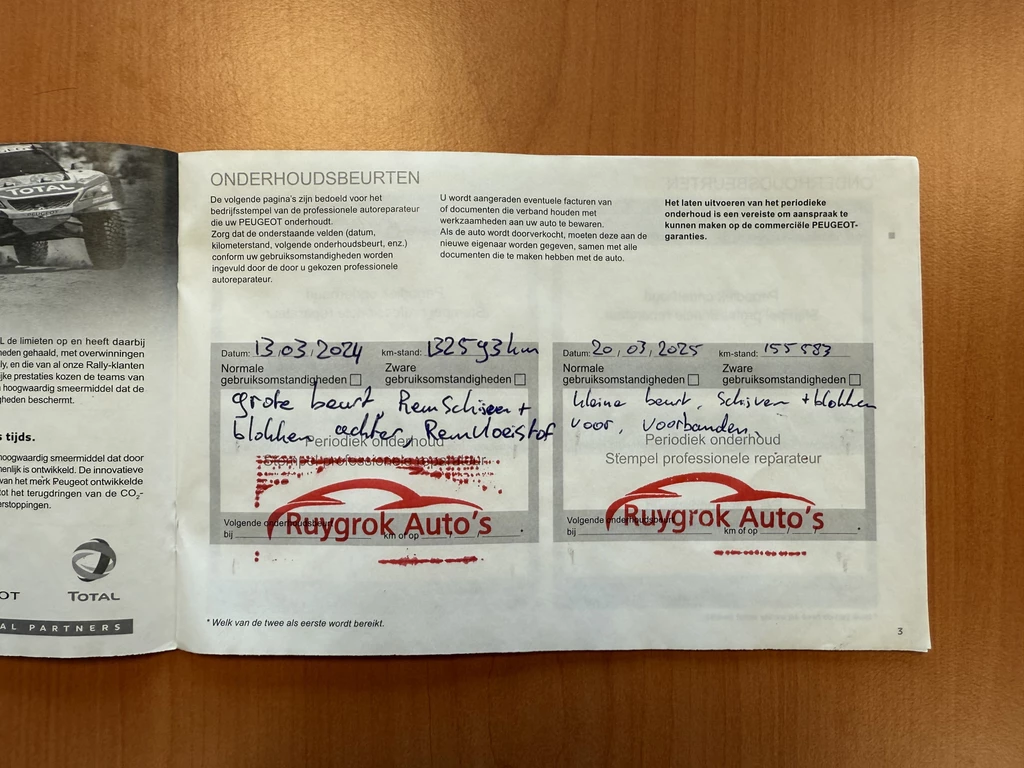 TOTAL
PEUGEOT
L de limieten op en heeft daarbij
heden gehaald, met overwinningen
ly, en die van al onze Rally-klanten
ijke prestaties kozen de teams van
hoogwaardig smeermiddel dat de
gheden beschermt.
s tijds.
hoogwaardig smeermiddel dat door
nenlijk is ontwikkeld. De innovatieve
van het merk Peugeot ontwikkelde
tot het terugdringen van de CO₂-
erstoppingen.
OT
TOTAL
AL PARTNERS
ONDERHOUDSBEURTEN
De volgende pagina's zijn bedoeld voor het
bedrijfsstempel van de professionele autoreparateur
die uw PEUGEOT onderhoudt.
Zorg dat de onderstaande velden (datum,
kilometerstand, volgende onderhoudsbeurt, enz.)
conform uw gebruiksomstandigheden worden
ingevuld door de door u gekozen professionele
autoreparateur.
U wordt aangeraden eventuele facturen van
of documenten die verband houden met
werkzaamheden aan uw auto te bewaren.
Als de auto wordt doorverkocht, moeten deze aan de
nieuwe eigenaar worden gegeven, samen met alle
documenten die te maken hebben met de auto.
Het laten uitvoeren van het periodieke
onderhoud is een vereiste om aanspraak te
kunnen maken op de commerciële PEUGEOT-
garanties.
Datum: 13/03/2024 km-stand: 132593km
Normale gebruiksomstandigheden
Zware gebruiksomstandigheden
grote beurt, Remschijven +
blokken achter, Remvloeistof
Periodiek onderhoud
Stempel professionele reparateur
Ruygrok Auto's
Volgende onderhoudsbeurt
bij km of op / / *
Datum: 20/03/2025 km-stand: 155583
Normale gebruiksomstandigheden
Zware gebruiksomstandigheden
kleine beurt, Schijven + blokken
voor, voorbanden.
Periodiek onderhoud
Stempel professionele reparateur
Ruygrok Auto's
Volgende onderhoudsbeurt
bij km of op / / *
* Welk van de twee als eerste wordt bereikt.
3